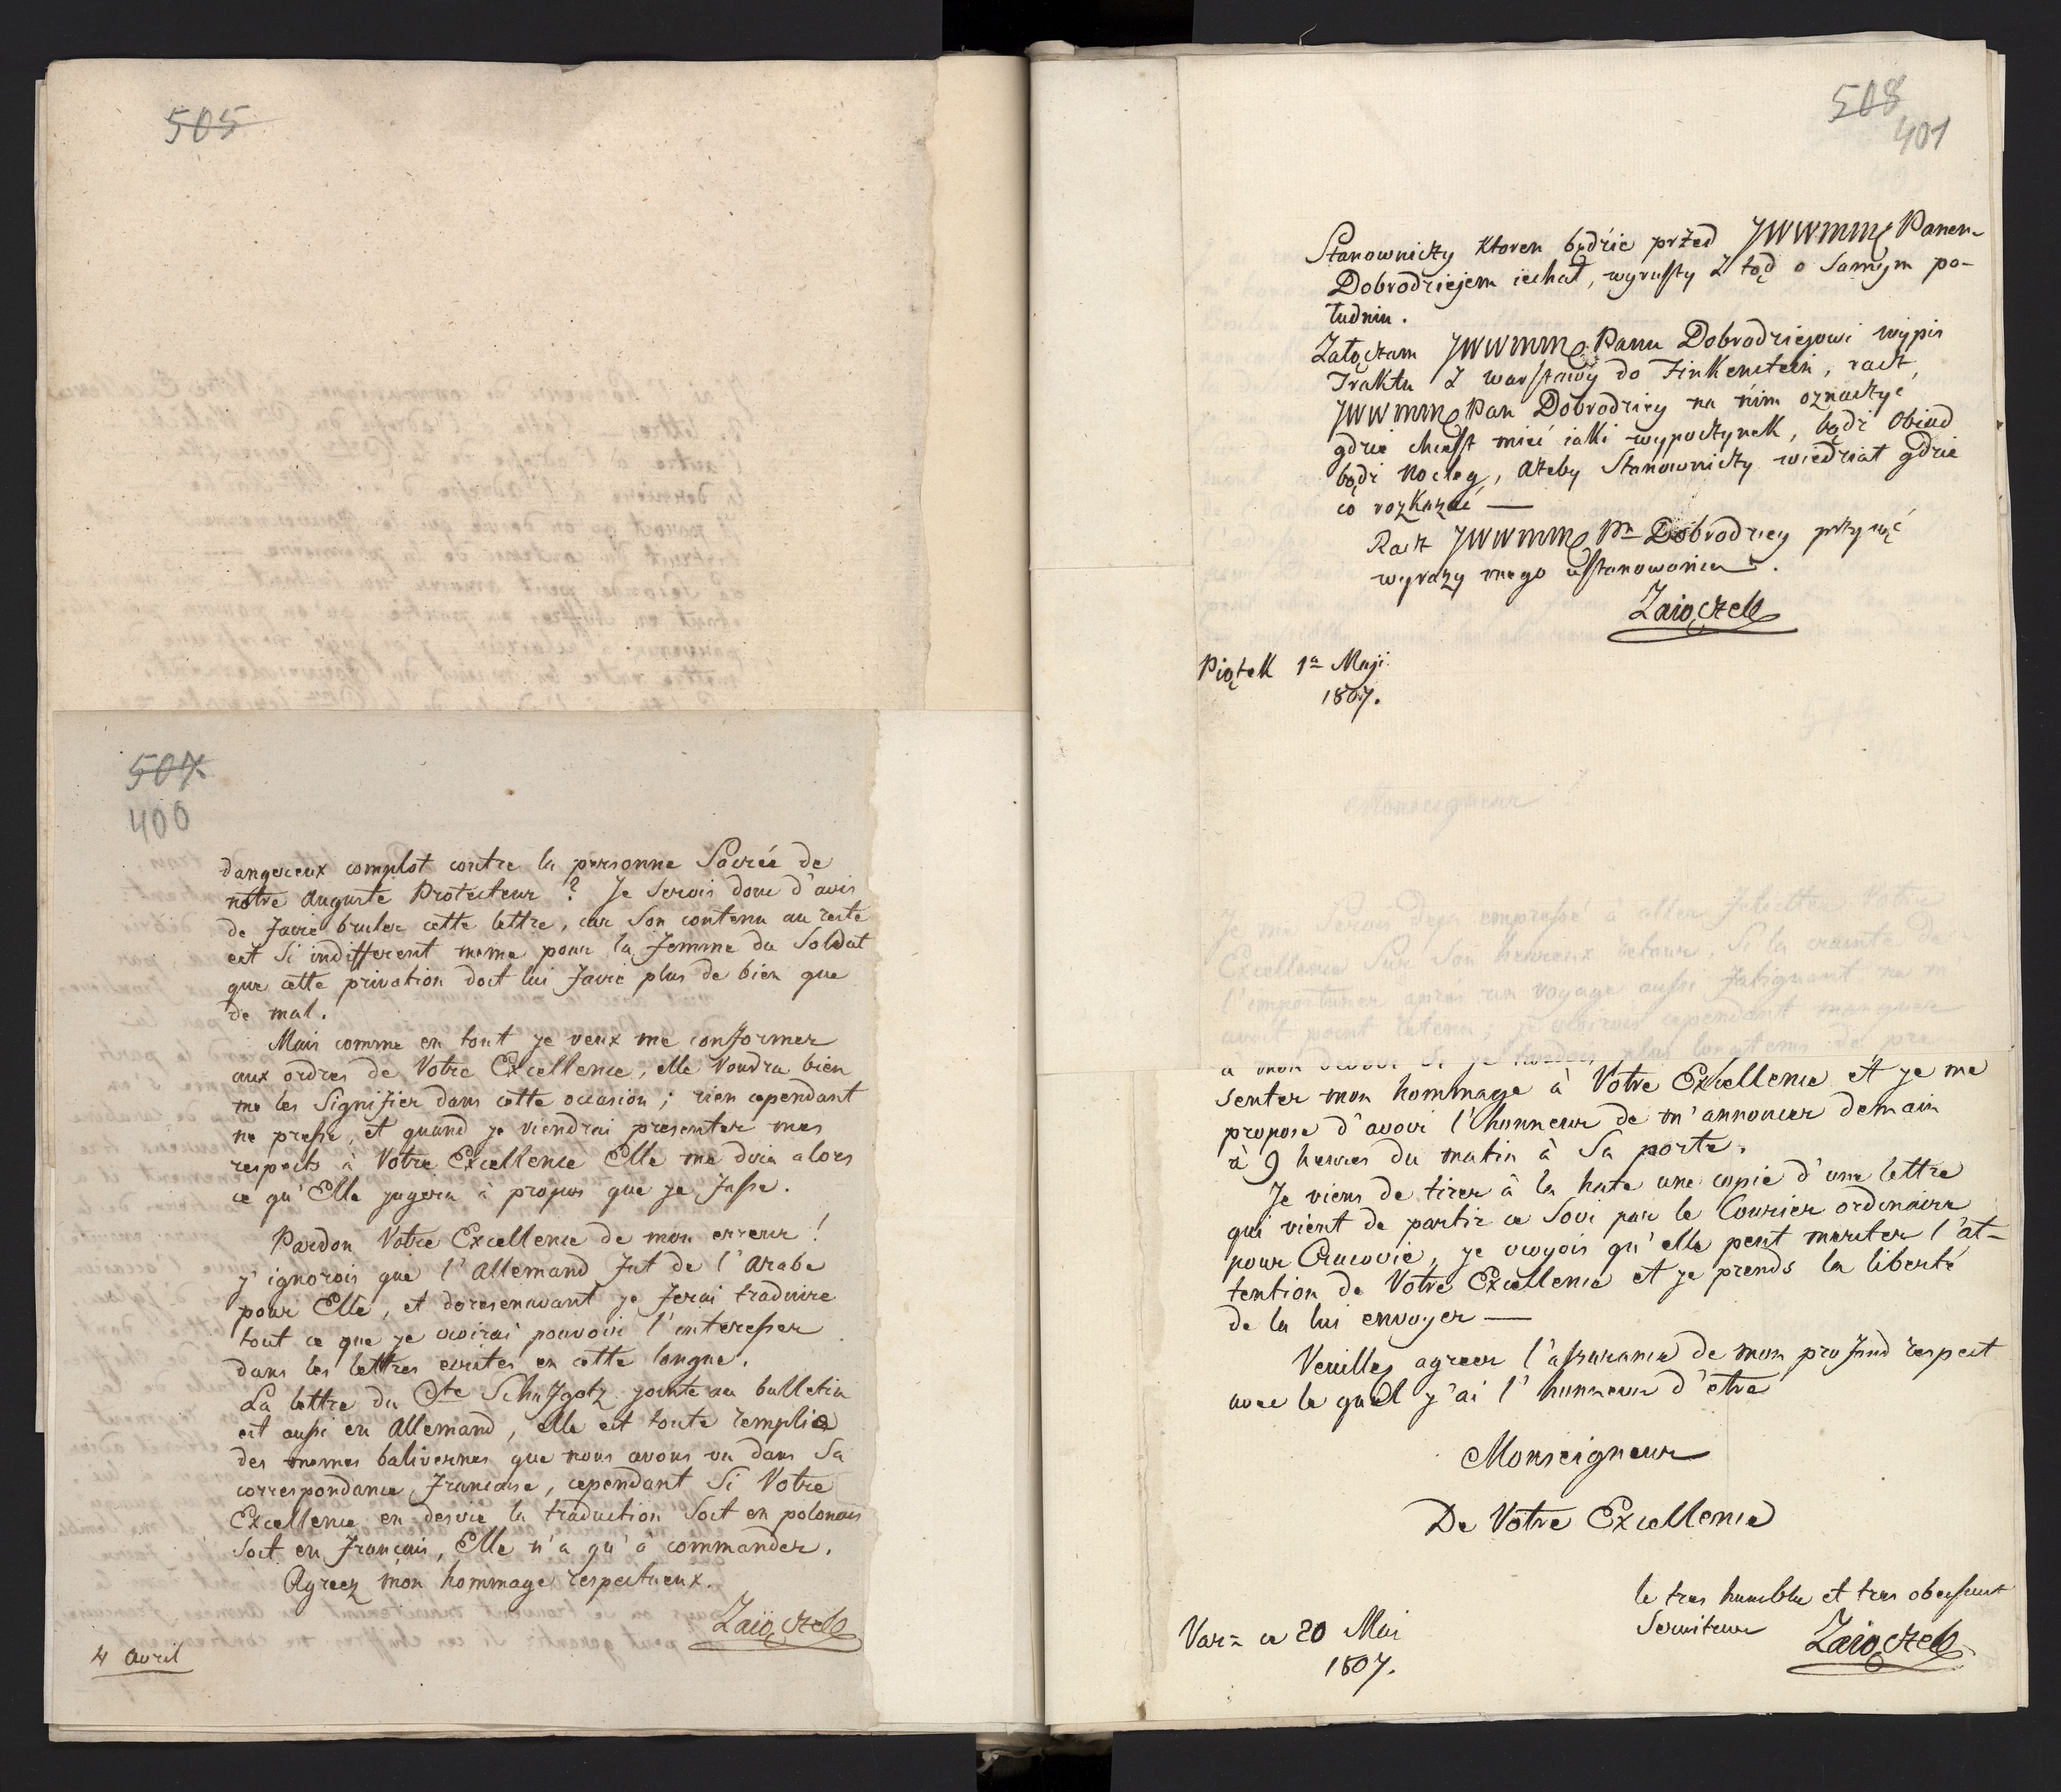 505
507
400
dangereux complot contre la personne Sacrée de
notre Auguste Protecteur? Je serois donc d'avis
de faire bruler cette lettre, car son contenu au reste
est si indifferent meme pour la femme du Soldat
que cette privation doit lui faire plus de bien que
de mal.
Mais comme en tout je veux me conformer
aux ordres de Votre Excellence, elle voudra bien
me les signifier dans cette occasion; rien cependant
ne presse, et quand je viendrai presenter mes
respects à Votre Excellence Elle me dira alors
ce qu'Elle jugera à propos que je fasse.
Pardon Votre Excellence de mon erreur!
j'ignorois que l'Allemand fut de l'Arabe
pour Elle, et doresenavant je ferai traduire
tout ce que je croirai pouvoir l'interesser
dans les lettres ecrites en cette langue.
La lettre du Cte Schafgotz jointe au bulletin
est aussi en Allemand, elle est toute remplie
des memes balivernes que nous avons vu dans Sa
correspondance francaise, cependant Si Votre
Excellence en desire la traduction soit en polonais
soit en francais, Elle n'a qu'à commander.
Agreez mon hommage respectueux.
Zaiączek
4 Avril
508
401
Stanowniczy ktoren będzie przed JWWMM Panem
Dobrodziejem iechał, wyruszy z tąd o samym po-
łudniu.
Załączam JWWMM Panu Dobrodziejowi wypis
Traktu z Warszawy do Finkenstein, racz,
JWWMM Pan Dobrodziey na nim oznaczyć
gdzie chcesz mieć iaki wypoczynek, bądź Obiad
bądź Nocleg, ażeby Stanowniczy wiedział gdzie
co rozkazać —
Racz JWWMM Pn Dobrodziey przyiąć
wyrazy mego uszanowania.
Zaiączek
Piątek 1a Maji
1807.
Monseigneur!
Je me serois deja empressé à aller feliciter Votre
Excellence sur son heureux retour, si la crainte de
l'importuner après un voyage aussi fatignant ne m'
avoit point retenu; je croirois cependant manquer
à mon devoir si je tardois plus longtems de pre
senter mon hommage à Votre Excellence et je me
propose d'avoir l'honneur de m'annoncer demain
à 9 heures du matin à Sa porte.
Je viens de tirer à la hate une copie d'une lettre
qui vient de partir ce soir par le Courier ordinaire
pour Cracovie, je croyois qu'elle peut meriter l'at-
tention de Votre Excellence et je prends la liberté
de la lui envoyer —
Veuillez agreer l'assurance de mon profond respect
avec le quel j'ai l'honneur d'etre
Monseigneur
De Votre Excellence
le tres humble et tres obeissant
Serviteur
Zaiączek
Var= ce 20 Mai
1807.